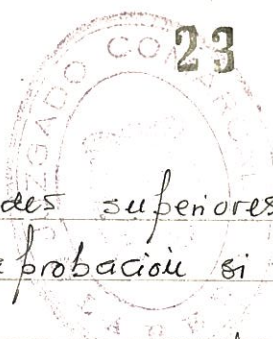 23
JUZGADO COMARCAL
des superiores
probación si